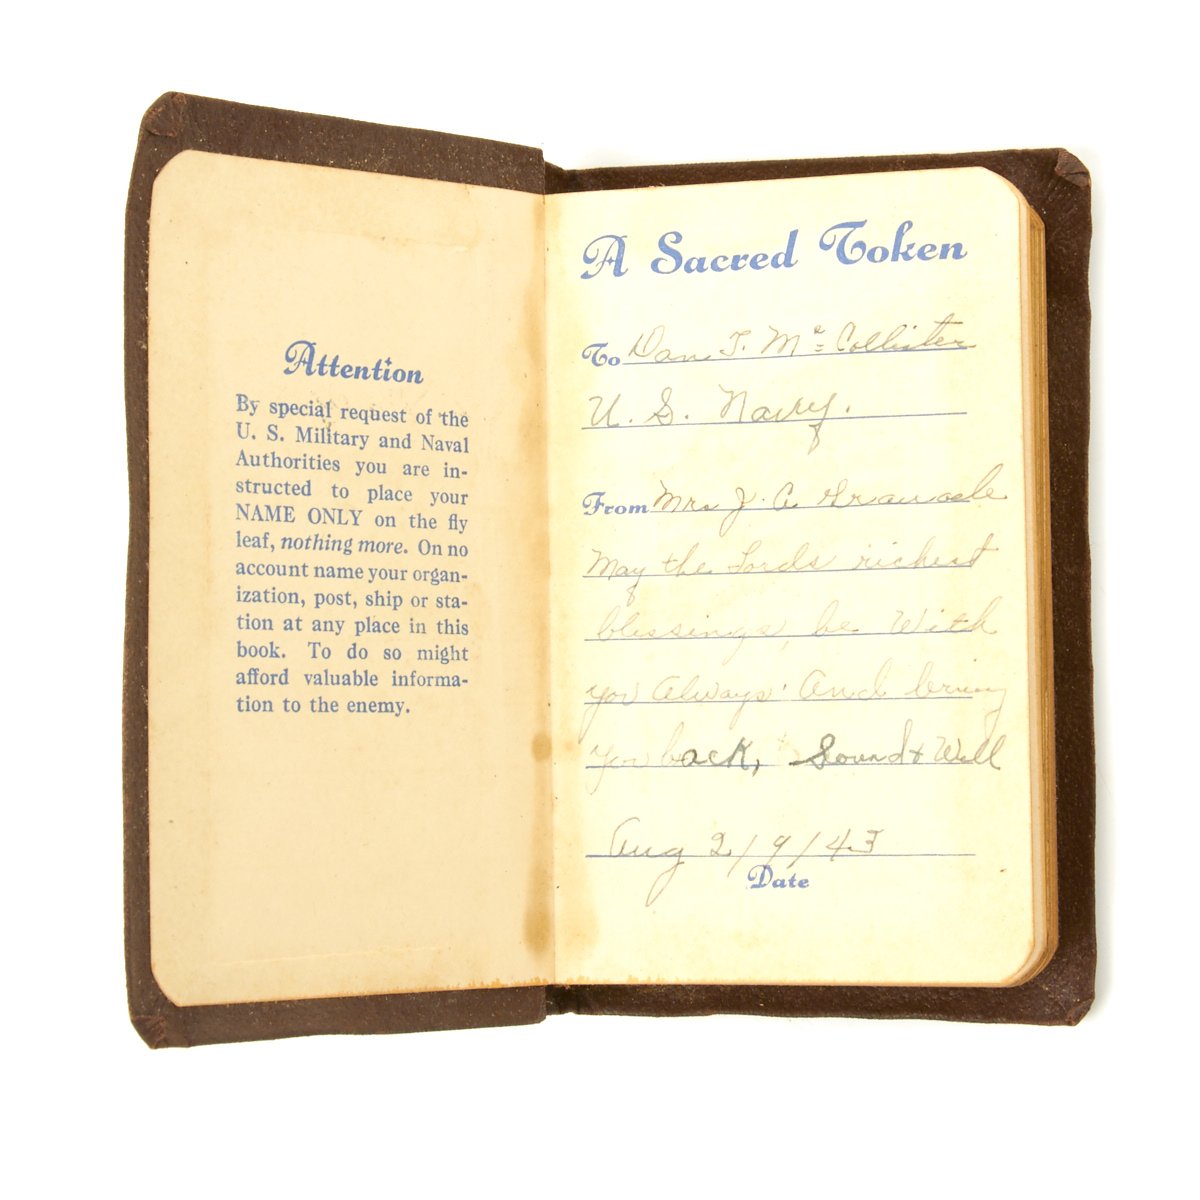 Attention
By special request of the
U. S. Military and Naval
Authorities you are in-
structed to place your
NAME ONLY on the fly
leaf, nothing more. On no
account name your organ-
ization, post, ship or sta-
tion at any place in this
book. To do so might
afford valuable informa-
tion to the enemy.
A Sacred Token
To Dan T. Mc Collister
U. S. Navy.
From Mrs J. A.
May the Lords richest
blessings, be With
you Always' And bring
you back, Sound & Well
Aug 2/9/43
Date